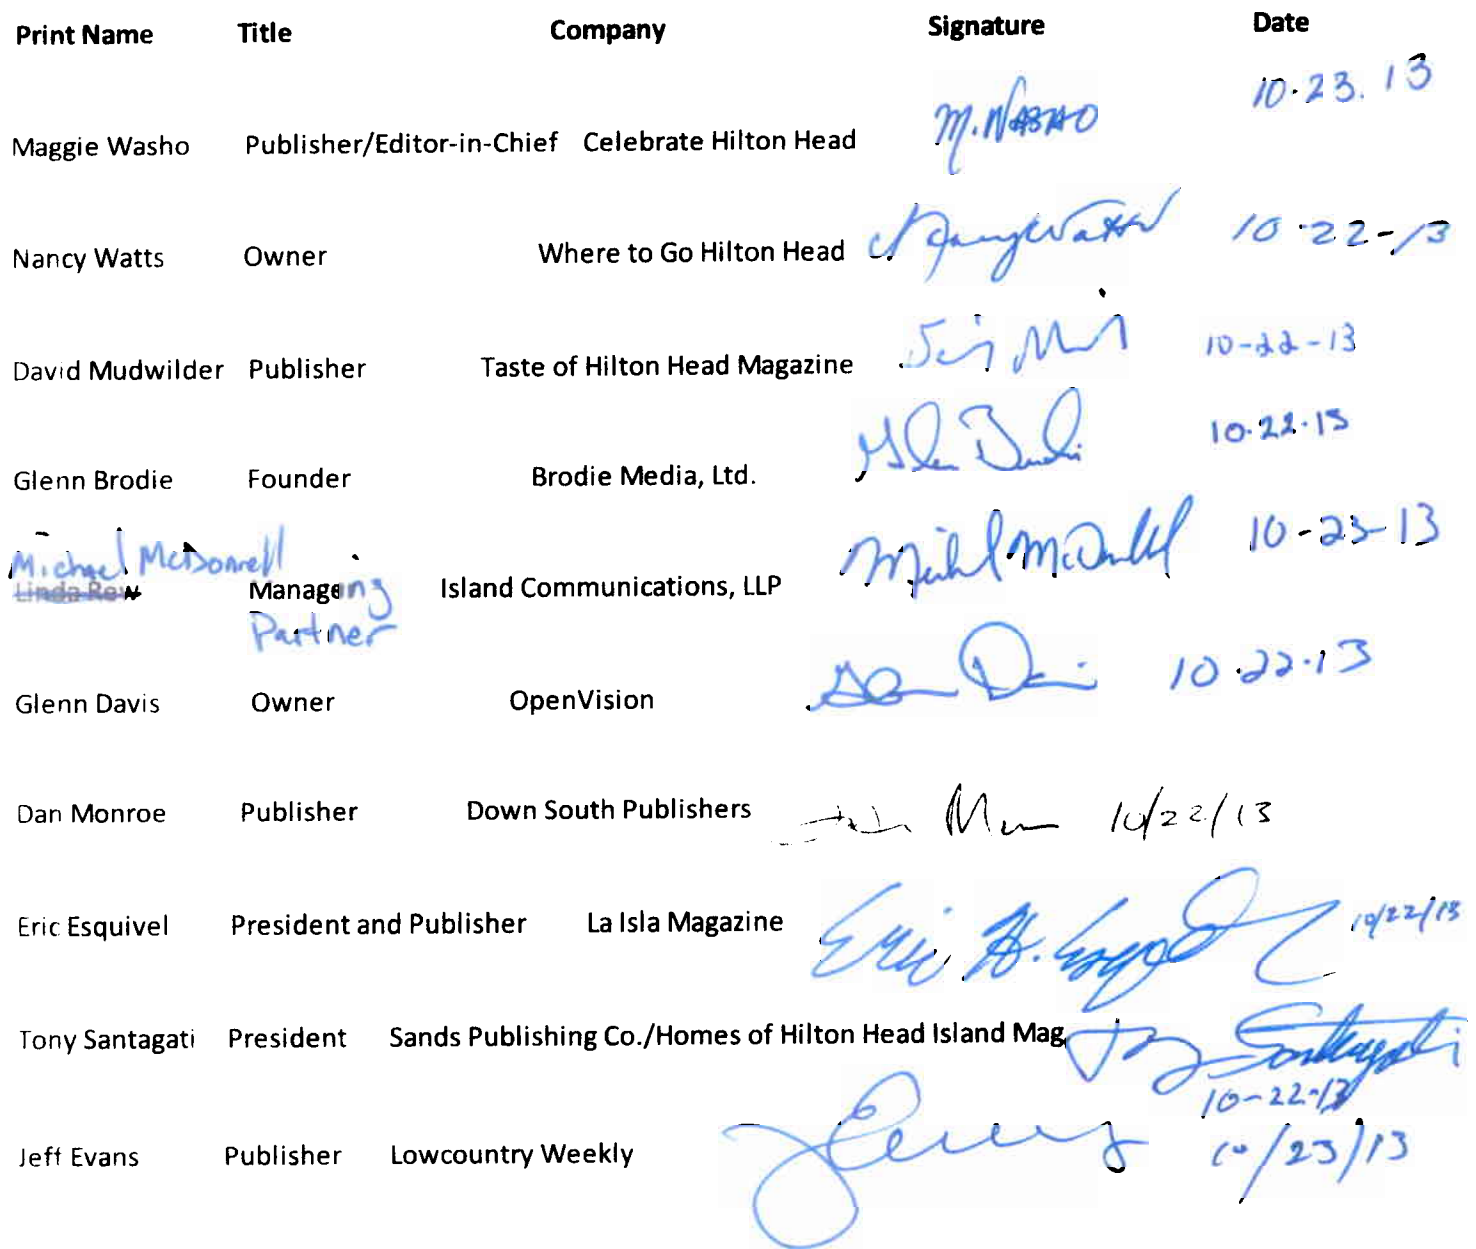 Print Name Title Company Signature Date
Maggie Washo Publisher/Editor-in-Chief Celebrate Hilton Head M. WASHO 10.23.13
Nancy Watts Owner Where to Go Hilton Head Nancy Watts 10-22-13
David Mudwilder Publisher Taste of Hilton Head Magazine 10-22-13
Glenn Brodie Founder Brodie Media, Ltd. 10.22.13
Michael McDonnell
Linda Rew Managing Island Communications, LLP 10-23-13
Partner
Glenn Davis Owner OpenVision 10.22.13
Dan Monroe Publisher Down South Publishers 10/22/13
Eric Esquivel President and Publisher La Isla Magazine Eric H. Esquivel 10/22/13
Tony Santagati President Sands Publishing Co./Homes of Hilton Head Island Mag. Tony Santagati
10-22-13
Jeff Evans Publisher Lowcountry Weekly 10/23/13